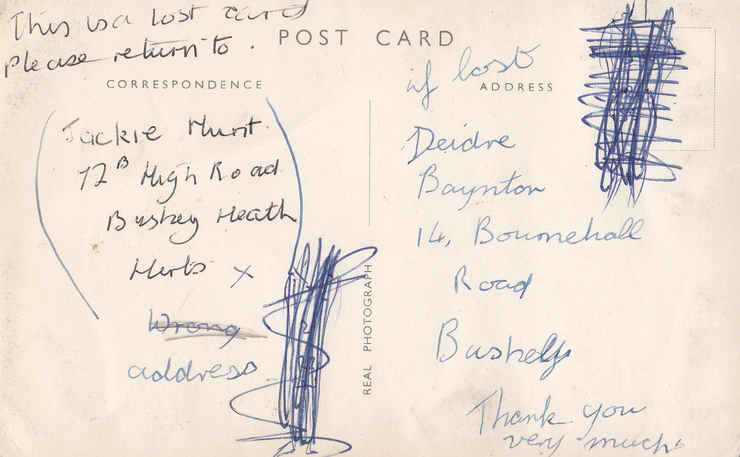 This is a lost card
please return to.
POST CARD
CORRESPONDENCE
Jackie Hunt.
72B High Road
Bushey Heath
Herts x
Wrong
address
REAL PHOTOGRAPH
if lost
ADDRESS
Deidre
Baynton
14, Bournehall
Road
Bushey
Thank you
very much